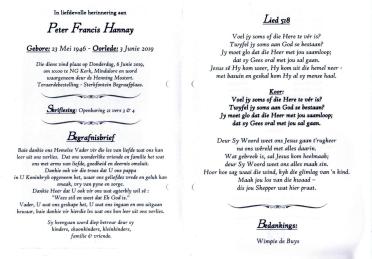 In liefdevolle herinnering aan
Peter Francis Hannay
Gebore: 23 Mei 1946 - Oorlede: 3 Junie 2019
Die diens sal plaas op Donderdag, 6 Junie 2019,
om 10:00 te NG Kerk, Mindalore en word
waargeneem deur ds Henning Mostert.
Teraardebestelling - Sterkfontein Begrafplaas.
Skriflesing: Openbaring 21 vers 3 & 4
Begrafnisbrief
Baie dankie ons Hemelse Vader vir die les van liefde wat ons kan
leer uit ons verlies. Dat ons wonderlike vriende en familie het wat
ons met arms van liefde, goedheid en deernis omsluit.
Dankie ook vir die troos dat U ons pappa
in U Koninkryk opgeneem het, waar ons geliefdes vrede en geluk kan
smaak, vry van pyne en sorge.
Dankie Heer dat U ook vir ons wat agterbly wil sê :
"Wees stil en weet dat Ek God is."
Vader, U wat ons geskape het, U wat ons ingaan en ons uitgaan
bewaar, baie dankie vir hierdie les wat ons kon leer uit ons verlies.
Sy heengaan word diep betreur deur sy
kinders, skoonkinders, kleinkinders,
familie & vriende.
Lied 528
Voel jy soms of die Here te vér is?
Twyfel jy soms aan God se bestaan?
Jy moet glo dat die Heer met jou saamloop;
dat sy Gees oral met jou sal gaan.
Jesus sê Hy kom weer, Hy kom uit die hemel neer -
met basuin en geskal kom Hy al sy mense haal.
Koor:
Voel jy soms of die Here te vér is?
Twyfel jy soms aan God se bestaan?
Jy moet glo dat die Heer met jou saamloop;
dat sy Gees oral met jou sal gaan.
Deur Sy Woord weet ons Jesus gaan t'rugkeer
na ons wêreld met alles daarin.
Wat gebreek is, sal Jesus kom heelmaak;
deur Sy Woord weet ons alles maak sin.
Hoor hoe sag waai die wind, kyk die glimlag van 'n kind.
Maak jou los van die kwaad –
dis jou Skepper wat hier praat.
Bedankings:
Wimpie de Buys